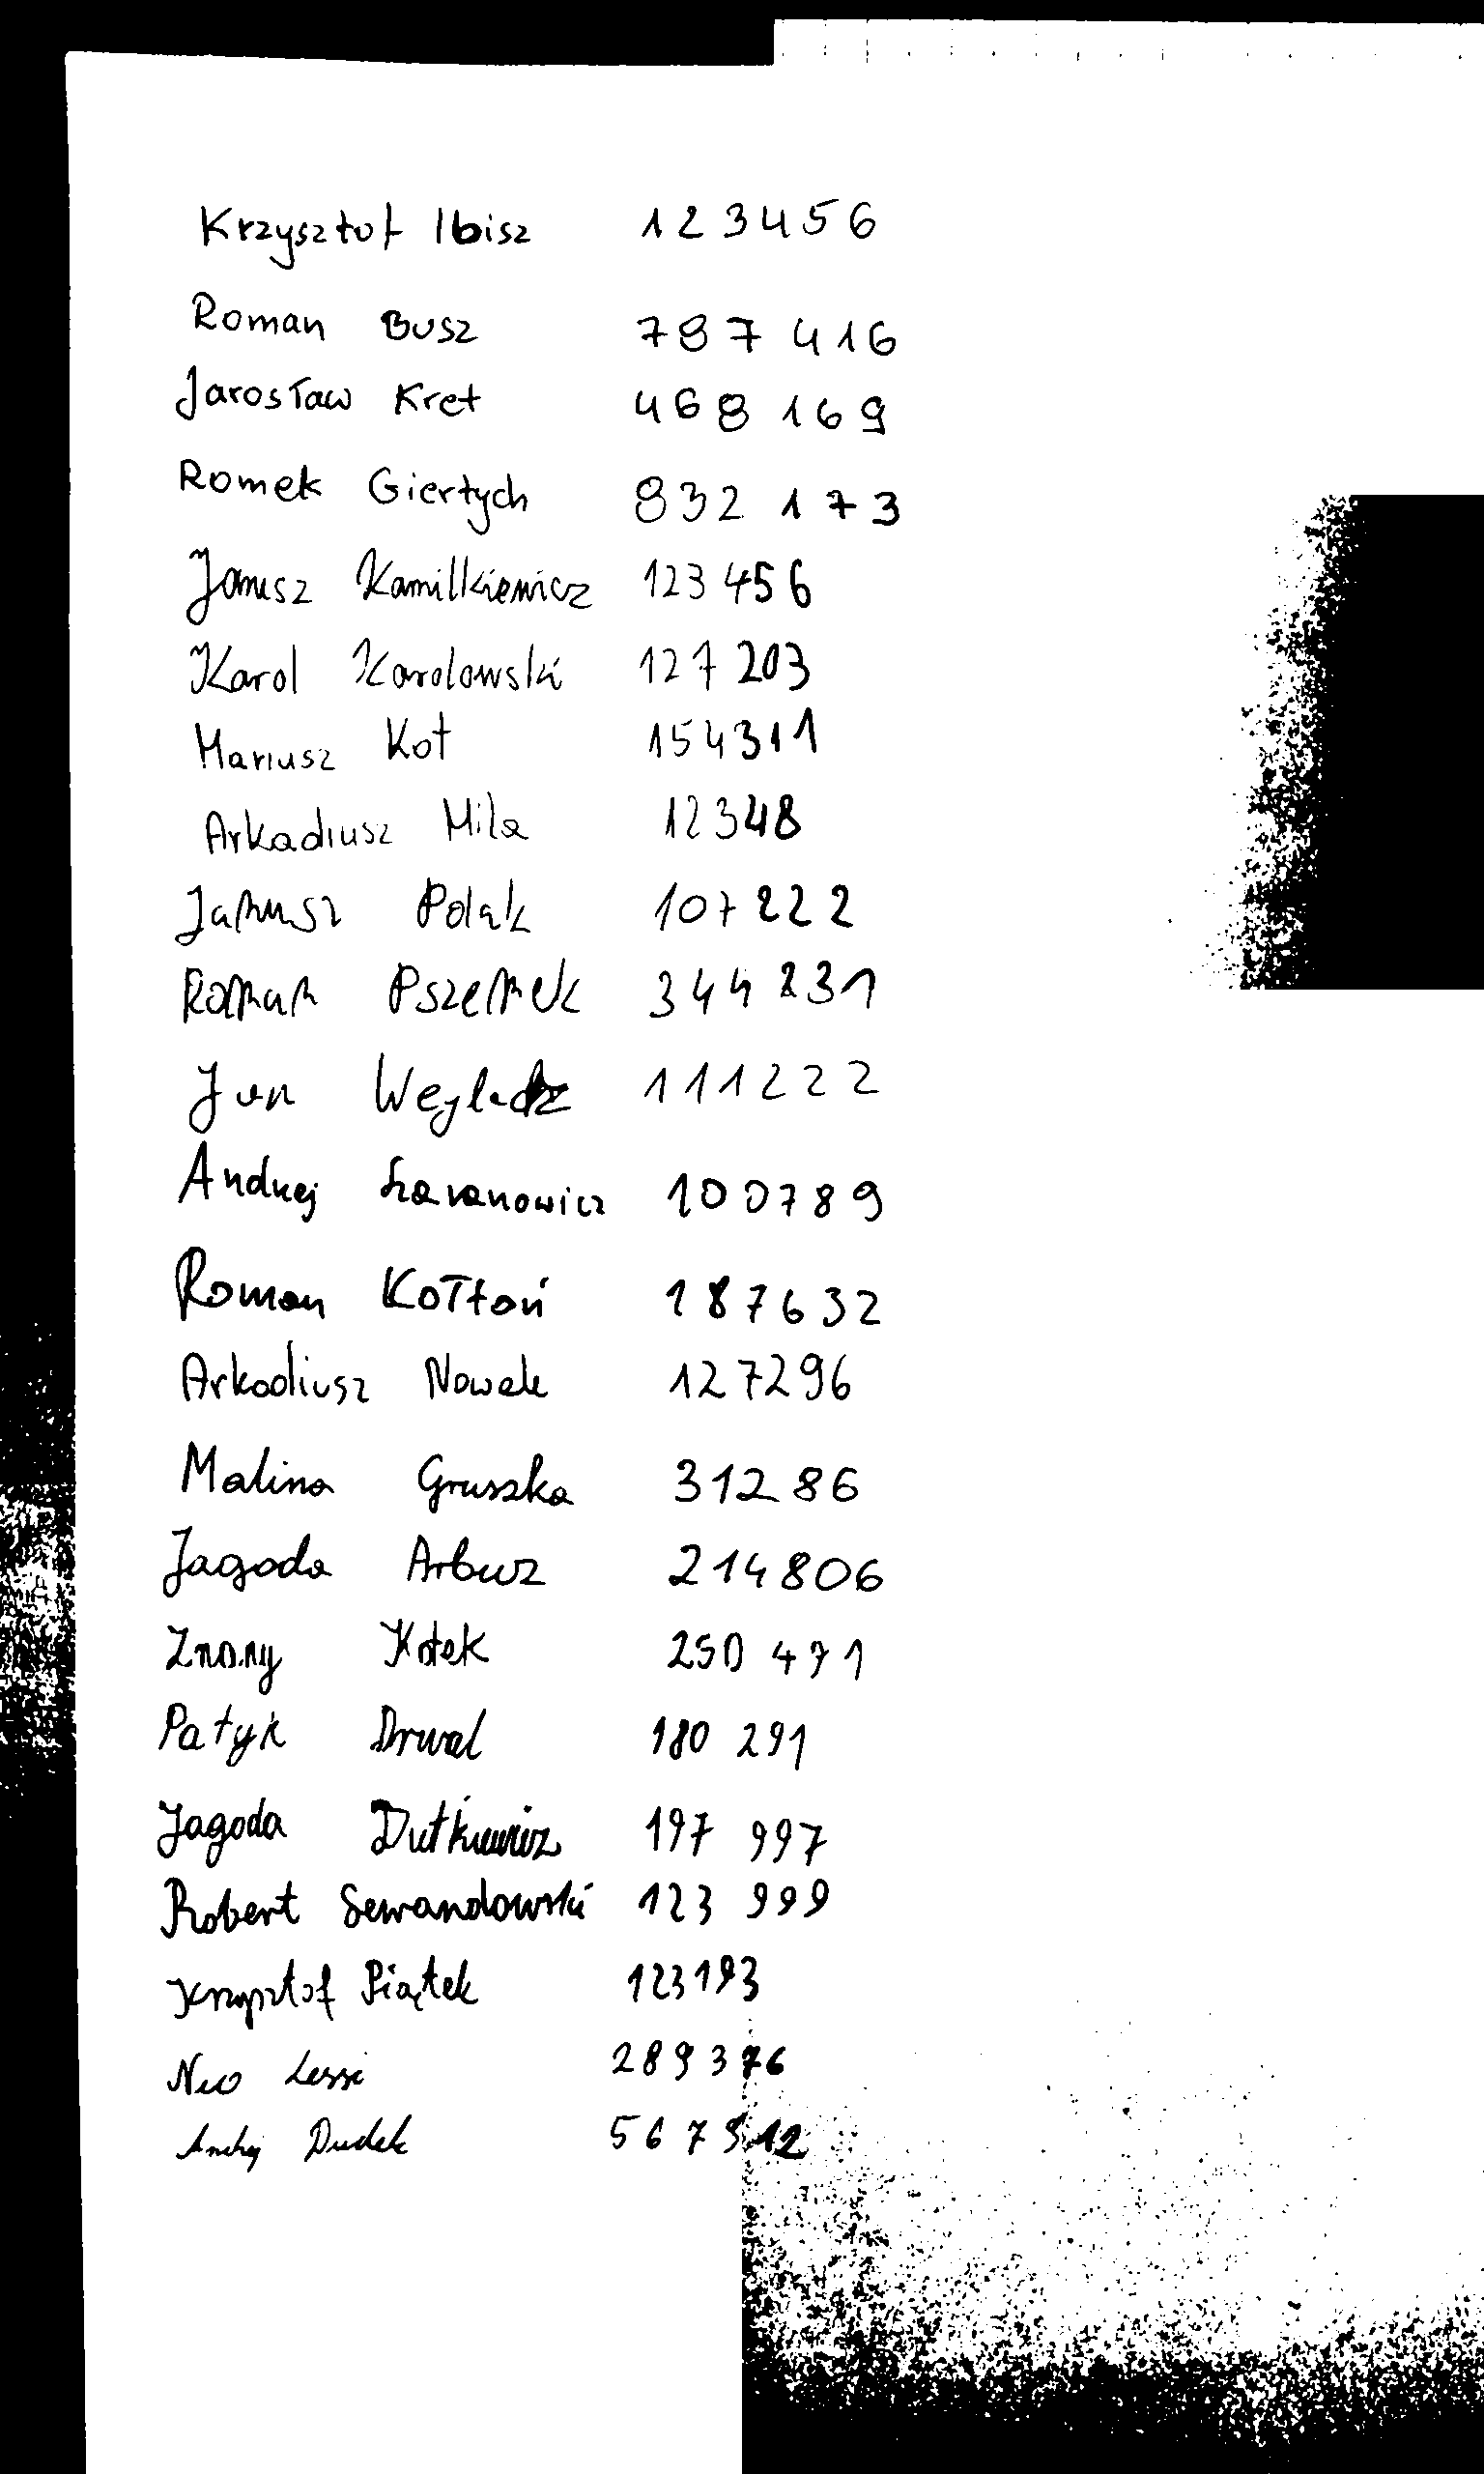 Krzysztof Ibisz 123456
Roman Busz 787 416
Jarosław Kret 468 169
Romek Giertych 832 173
Janusz Kamilkiewicz 123 456
Karol Karolowski 127 203
Mariusz Kot 154311
Arkadiusz Mila 12348
Janusz Polak 107 222
Roman Pszemek 344 231
Jan 111222
Andrzej 100789
Roman Kołtoń 187632
Arkadiusz Nowak 127296
Malina Gruszka 31286
Jagoda Arbuz 214806
Znany Kotek 250 471
Patyk Drwal 180 291
Jagoda Dutkiewicz 197 997
Robert Lewandowski 123 999
Krzysztof Piątek 123193
Neo Lessi 289376
Andrzej Dudek